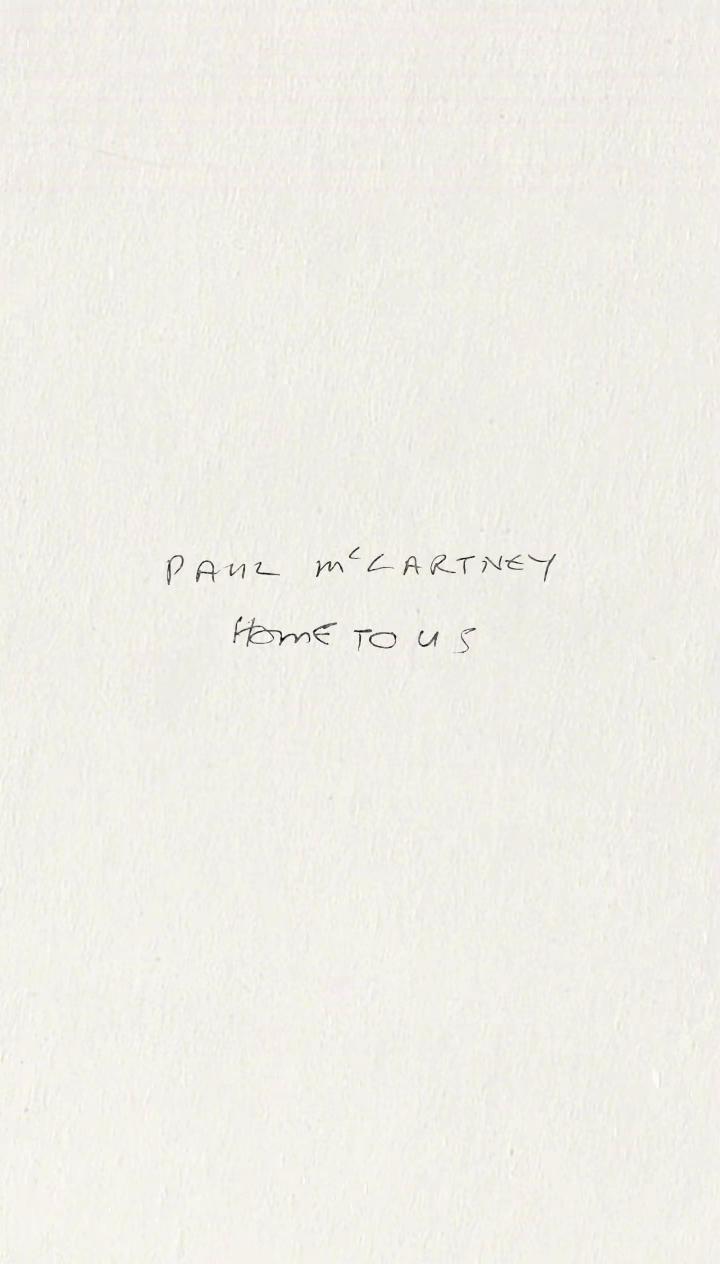 PAUL McCARTNEY
HOME TO US